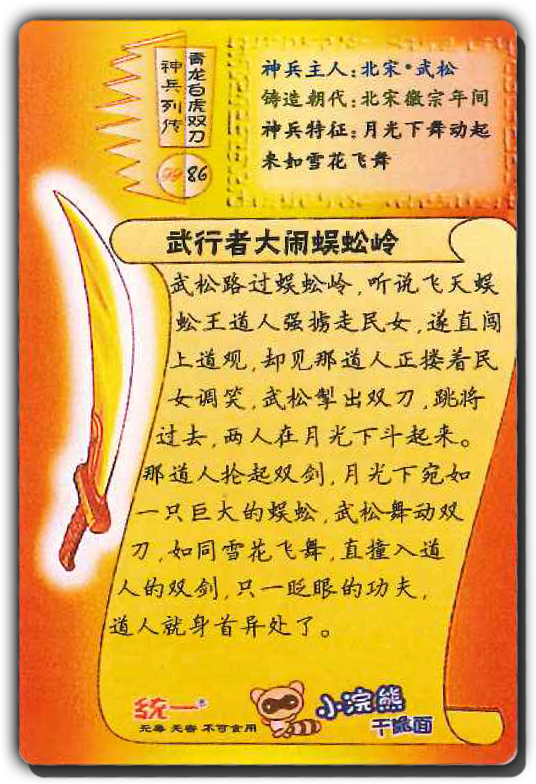 神兵列传
青龙白虎双刀
86
神兵主人：北宋·武松
铸造朝代：北宋徽宗年间
神兵特征：月光下舞动起
来如雪花飞舞
武行者大闹蜈蚣岭
武松路过蜈蚣岭，听说飞天蜈
蚣王道人强掳走民女，遂直闯
上道观，却见那道人正搂着民
女调笑，武松掣出双刀，跳将
过去，两人在月光下斗起来。
那道人抡起双剑，月光下宛如
一只巨大的蜈蚣，武松舞动双
刀，如同雪花飞舞，直撞入道
人的双剑，只一眨眼的功夫，
道人就身首异处了。
统一®
无毒 无害 不可食用
小浣熊
干脆面